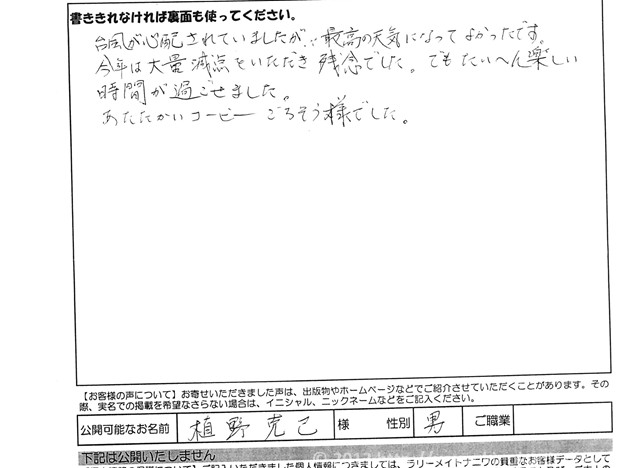 書ききれなければ裏面も使ってください。
台風が心配されていましたが、最高の天気になってよかったです。
今年は大量減点をいただき残念でした。でもたいへん楽しい
時間が過ごせました。
あたたかいコーヒー ごちそう様でした。
【お客様の声について】お寄せいただきました声は、出版物やホームページなどでご紹介させていただくことがあります。その
際、実名での掲載を希望なさらない場合は、イニシャル、ニックネームなどをご記入ください。
公開可能なお名前 植野克己 様 性別 男 ご職業
下記は公開いたしません
ご記入いただきました個人情報につきましては、ラリーメイトナニワの貴重なお客様データとして